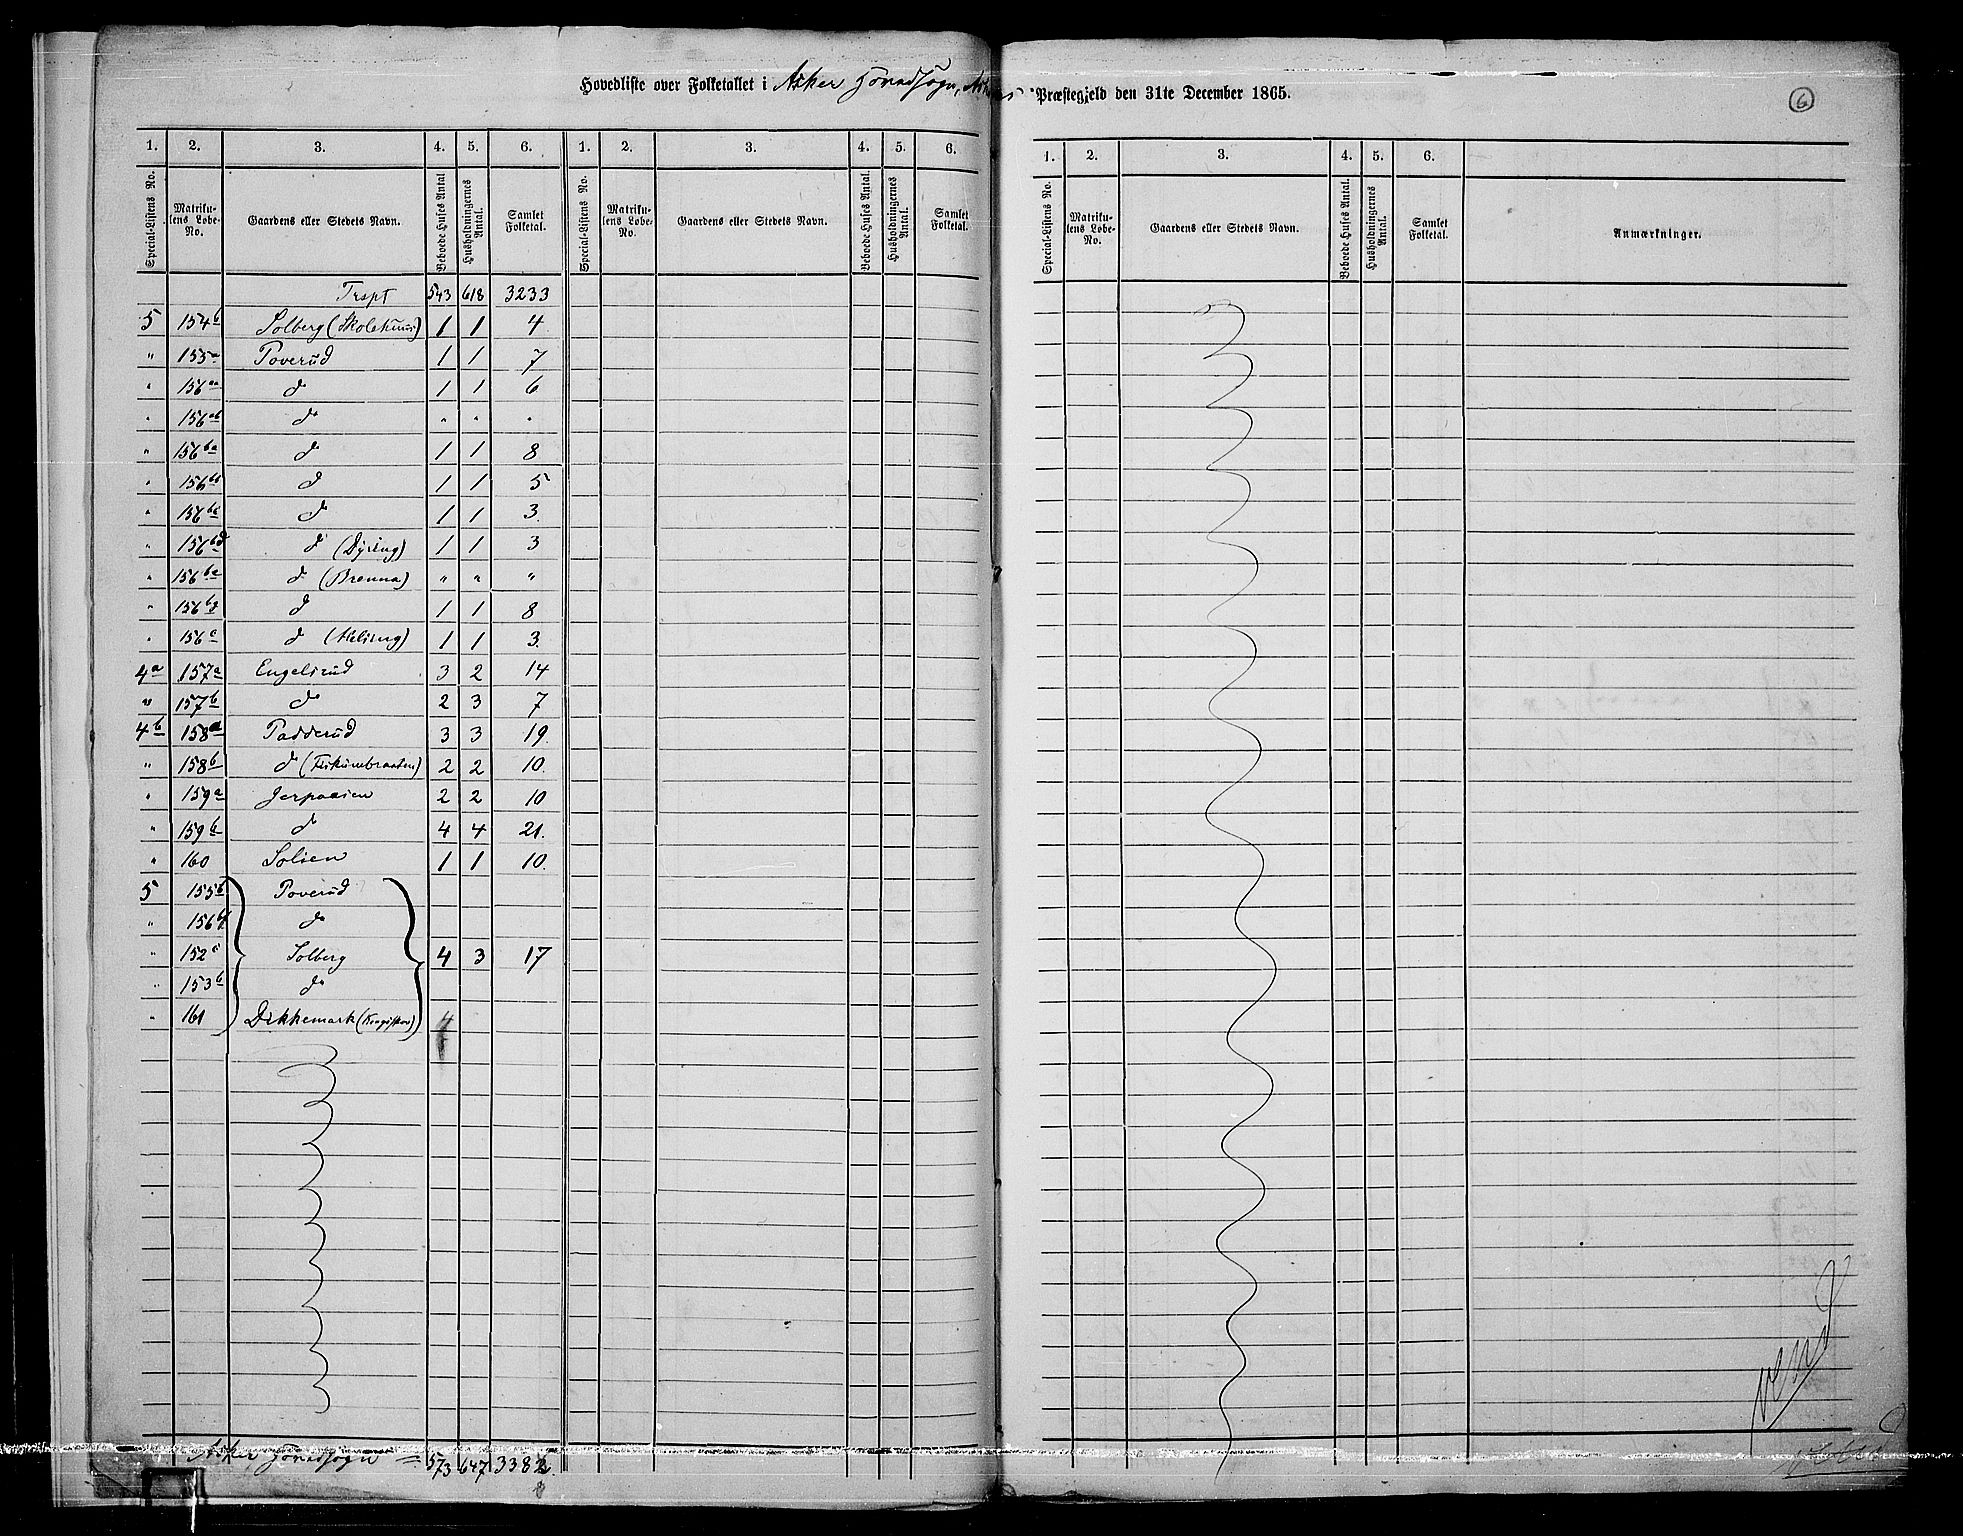 Hovedliste over Folketallet i Asker Hovedsogn, Askers Præstegjeld den 31te December 1865.
6
1. 2. 3. 4. 5. 6. 1. 2. 3. 4. 5. 6. 1. 2. 3. 4. 5. 6.
Special-Listens No. Matrikulens Løbe-No. Gaardens eller Stedets Navn. Beboede Huses Antal Husholdningernes Antal. Samlet Folketal. Special-Listens No. Matrikulens Løbe-No. Gaardens eller Stedets Navn. Beboede Huses Antal. Husholdningernes Antal. Samlet Folketal. Special-Listens No. Matrikulens Løbe-No. Gaardens eller Stedets Navn. Beboede Huses Antal. Husholdningernes Antal. Samlet Folketal. Anmærkninger.
Trspt 543 618 3233
5 154b Solberg (Skolehuus) 1 1 4
" 155a Poverud 1 1 7
" 156aa do 1 1 6
" 156ab do " " "
" 156ba do 1 1 8
" 156bb do 1 1 5
" 156bc do 1 1 3.
" 156bd do (Dyring) 1 1 3
" 156be do (Brenna) " " "
" 156bg do 1 1 8
" 156c do 1 1 3.
4a 157a Engelsrud 3 2 14
" 157b do 2 3 7
4b 158a Padderud 3 3 19.
" 158b do 2 2 10.
" 159a Jerpaasen 2 2 10
" 159b do 4 4 21.
" 160 Solien 1 1 10.
5 155b Poverud
" 156bf do
" 152c Solberg 4 3 17
" 153b do
" 161 Dikkemark 4
Asker Hovedsogn = 573 647 3382.